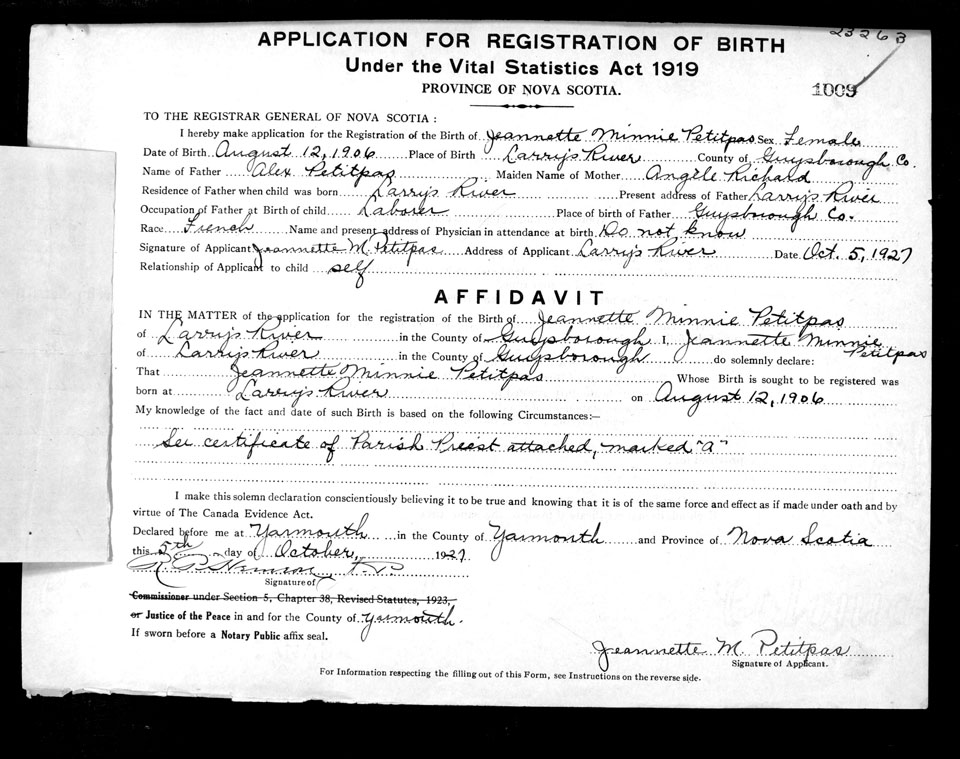 23263
APPLICATION FOR REGISTRATION OF BIRTH
Under the Vital Statistics Act 1919
PROVINCE OF NOVA SCOTIA.
1009
TO THE REGISTRAR GENERAL OF NOVA SCOTIA:
I hereby make application for the Registration of the Birth of Jeannette Minnie Petitpas Sex Female
Date of Birth August 12, 1906 Place of Birth Larry's River County of Guysborough Co.
Name of Father Alex Petitpas Maiden Name of Mother Angèle Richard
Residence of Father when child was born Larry's River Present address of Father Larry's River
Occupation of Father at Birth of child Laborer Place of birth of Father Guysborough Co.
Race French Name and present address of Physician in attendance at birth Do not know
Signature of Applicant Jeannette M. Petitpas Address of Applicant Larry's River Date Oct. 5, 1927
Relationship of Applicant to child self
AFFIDAVIT
IN THE MATTER of the application for the registration of the Birth of Jeannette Minnie Petitpas
of Larry's River in the County of Guysborough I, Jeannette Minnie Petitpas
of Larry's River in the County of Guysborough do solemnly declare:
That Jeannette Minnie Petitpas Whose Birth is sought to be registered was
born at Larry's River on August 12, 1906
My knowledge of the fact and date of such Birth is based on the following Circumstances:—
See certificate of Parish Preest attached, marked "a"
I make this solemn declaration conscientiously believing it to be true and knowing that it is of the same force and effect as if made under oath and by
virtue of The Canada Evidence Act.
Declared before me at Yarmouth in the County of Yarmouth and Province of Nova Scotia
this 5th day of October, 1927
Signature of
Commissioner under Section 5, Chapter 38, Revised Statutes, 1923,
or Justice of the Peace in and for the County of Yarmouth.
If sworn before a Notary Public affix seal.
Jeannette M. Petitpas
Signature of Applicant.
For Information respecting the filling out of this Form, see Instructions on the reverse side.